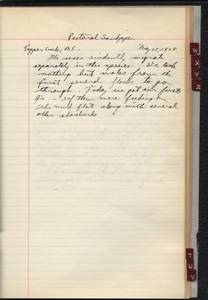 Pectoral Sandpiper
Pepper Creek, B.C. May 12, 1928
The sexes evidently migrate
separately in this species. We took
nothing but males from the
first several flocks to go
through. Today we got our first
♀. They were feeding on
the mud flat along with several
other shorebirds
W
X
Y
Z
T
U
V